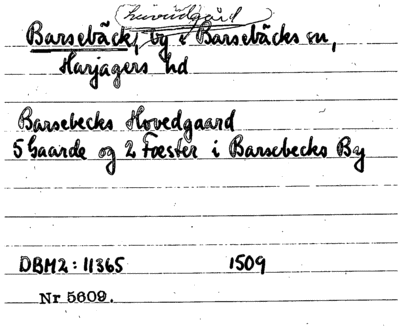 (huvudgård)
Barsebäck, by i Barsebäcks sn,
Harjagers hd
Barsebecks Hovedgaard
5 Gaarde og 2 Fæster i Barsebecks By
DBM2: 11365 1509
Nr 5609.